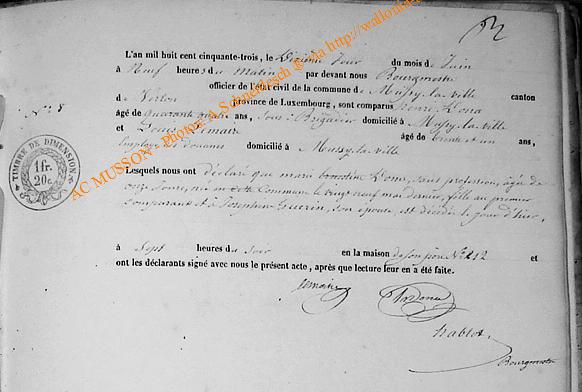 L'an mil huit cent cinquante-trois, le Dixième Jour du mois de Juin
à Neuf heures du Matin par devant nous Bourgmestre
officier de l'état civil de la commune de Mussy-la-ville canton
N° 8
de Virton province de Luxembourg, sont comparus Henri Dona
âgé de quarante quatre ans, Sous Brigadier domicilié à Mussy-la-ville
et Louis Lemaire âgé de trente et un ans,
Employé des douanes domicilié à Mussy-la-ville
TIMBRE DE DIMENSION
1fr.
20c.
Lesquels nous ont déclaré que marie Dona, sans profession, âgée de
onze Jours, née en cette Commune le vingt neuf mai dernier, fille au premier
comparant et à Joséphine Guerin, son épouse, est décédée le jour d'hier,
à Sept heures du soir en la maison de son père N° 212 et
ont les déclarants signé avec nous le présent acte, après que lecture leur en a été faite.
Lemaire
Dona
Bourgmestre
AC MUSSON - Photos: A. Schneidesch @ via http://wallonia